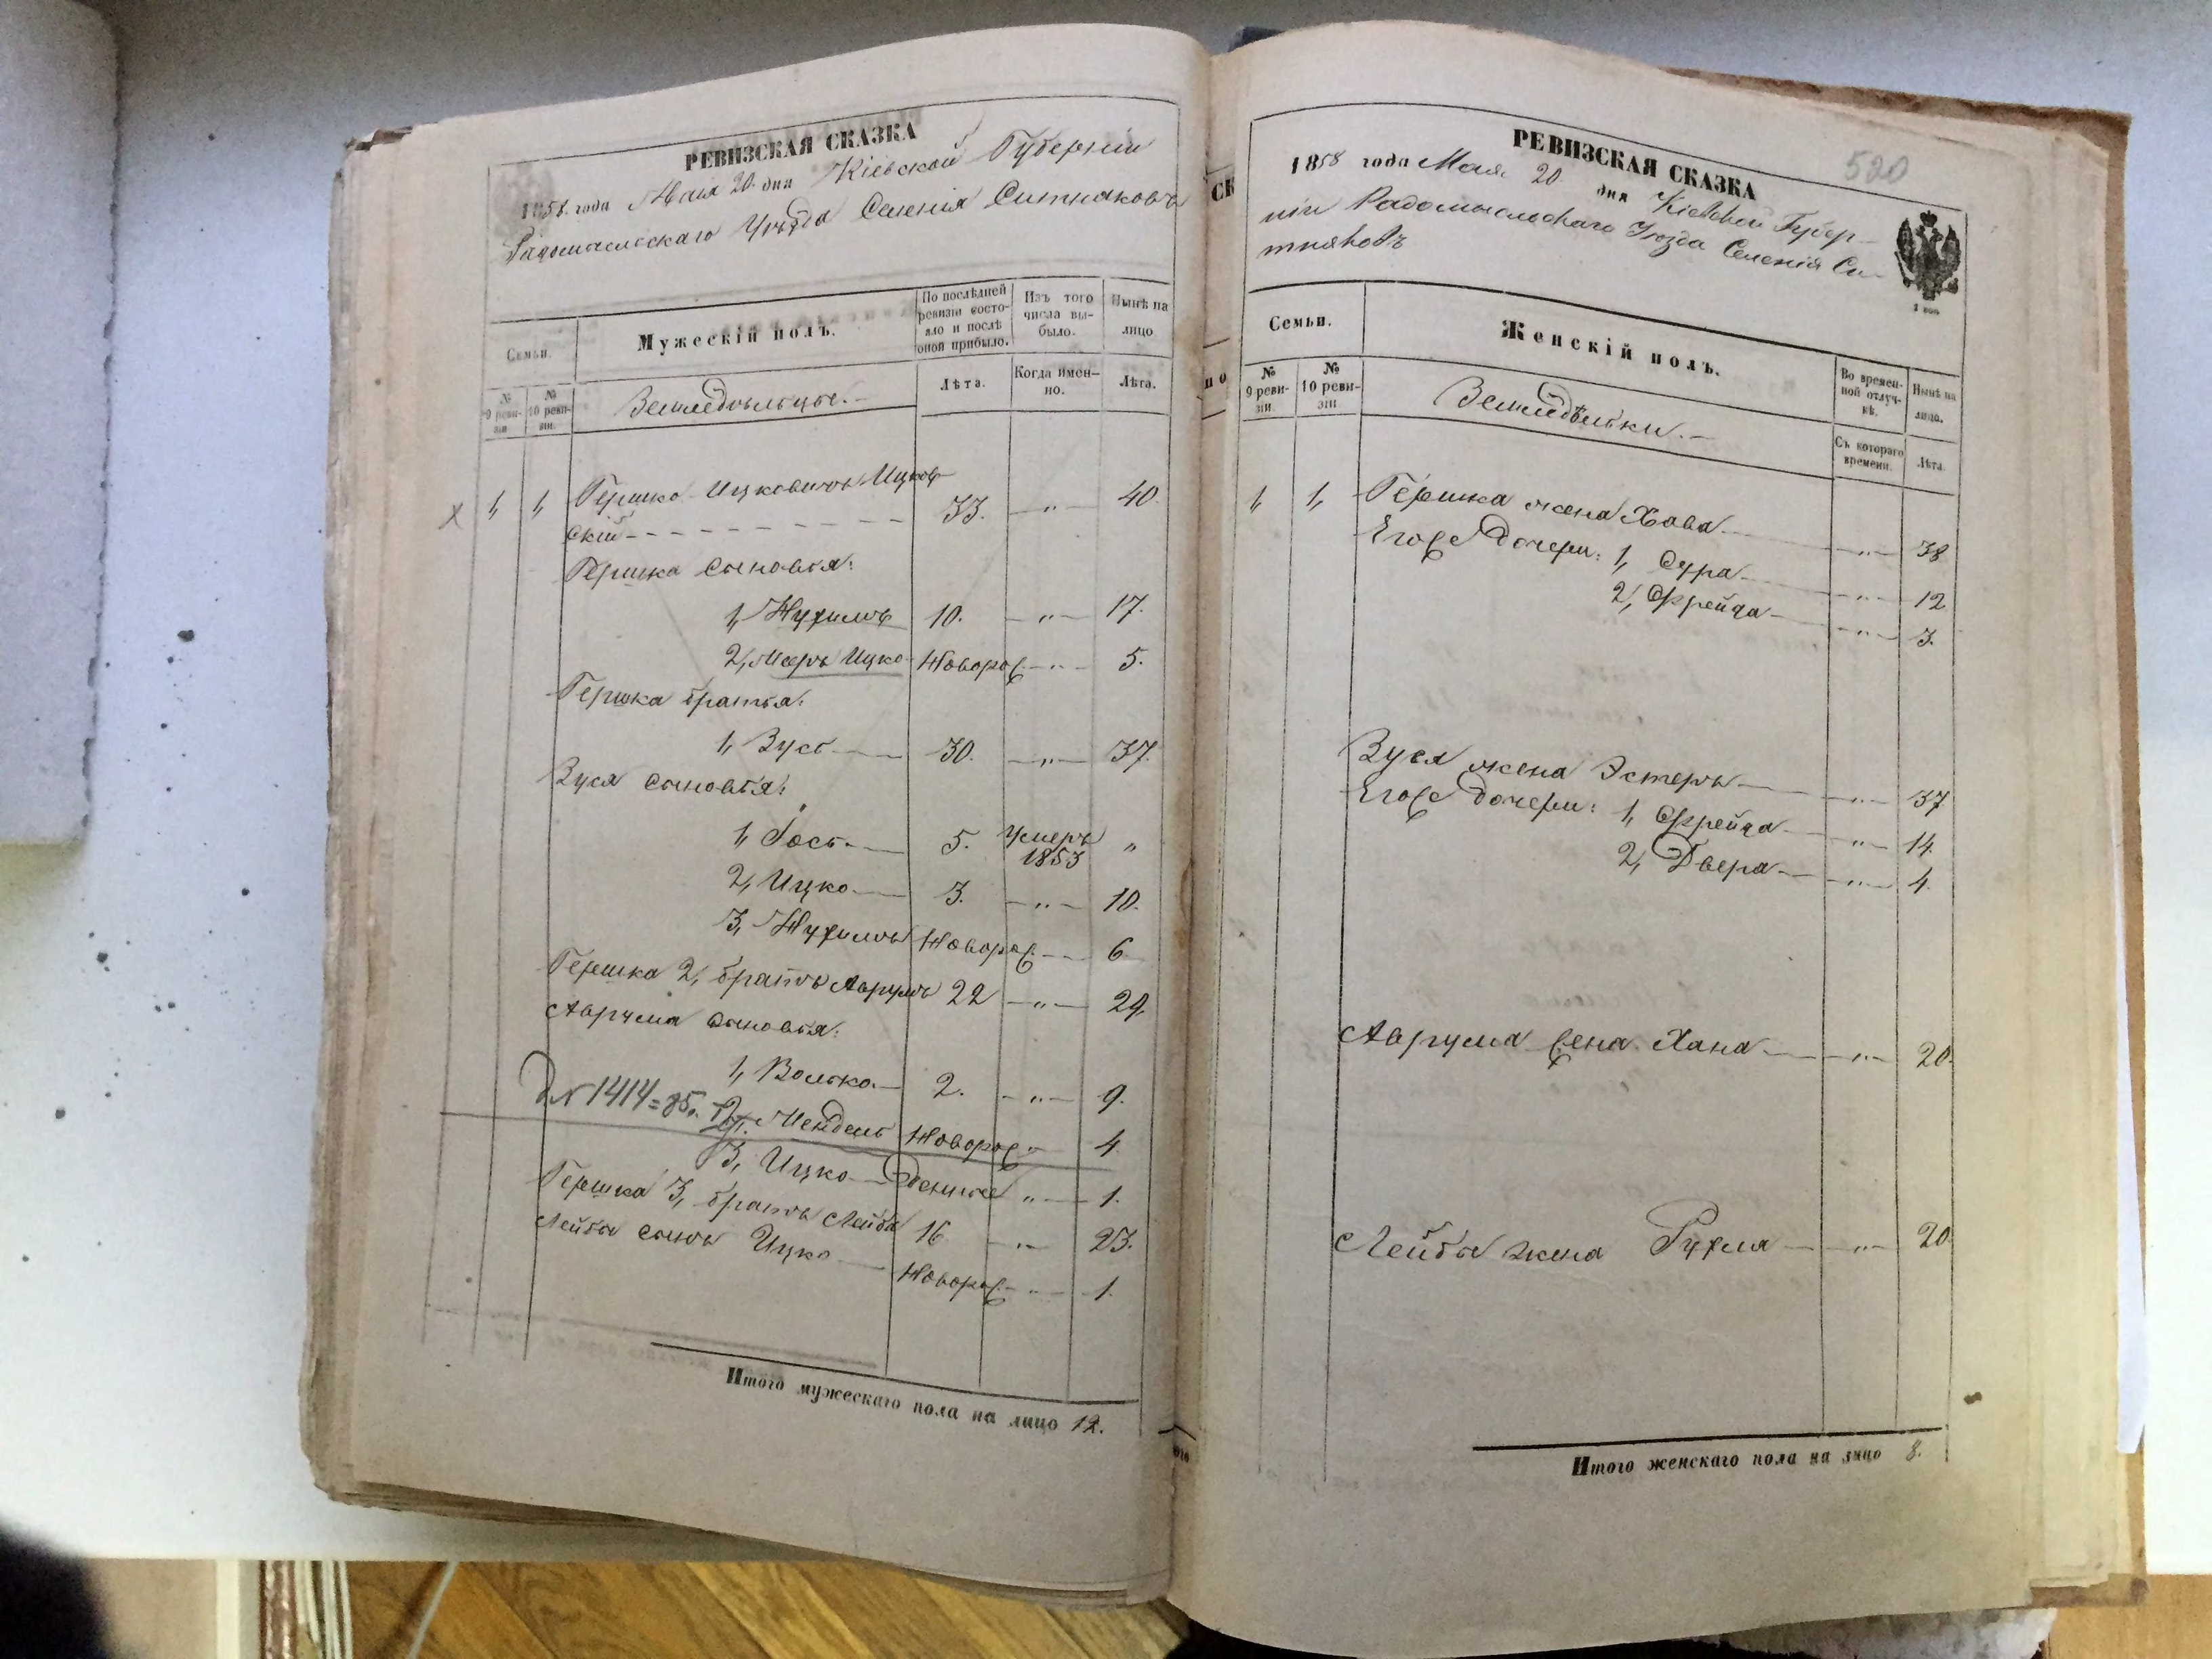 РЕВИЗСКАЯ СКАЗКА
1858. года Мая 20. дня Кіевской Губерніи
Радомысльскаго Уѣзда Селенія Ситняковъ
Семьи.
Мужескій полъ.
По послѣдней ревизіи состояло и послѣ оной прибыло.
Изъ того числа выбыло.
Нынѣ на лицо
№ 9 ревизіи
№ 10 ревизіи.
Земледѣльцы.
Лѣта.
Когда именно.
Лѣта.
х 1, 1, Гершко Ицковичъ Ицков-
скій 33. 〃 40.
Гершка Сыновья:
1, Нухимъ 10. 〃 17.
2, Мееръ Ицко Новорож. 〃 5.
Гершка братья:
1, Зусь 30. 〃 37.
Зуся Сыновья:
1, Іось 5. Умеръ 1853 〃
2, Ицко 3. 〃 10.
3, Нухимъ Новорож. 6
Гершка 2, братъ Аврумъ 22 〃 29.
Аврума Сыновья:
1, Волько 2. 〃 9.
№ 1414 = 85.
2, Мендель Новорож. 〃 4
3, Ицко 〃 1.
Гершка 3, братъ Лейба 16 〃 23.
Лейбы Сынъ Ицко Новорож. 〃 1.
Итого мужескаго пола на лицо 12.
520
РЕВИЗСКАЯ СКАЗКА
1858 года Мая 20 дня Кіевской Губер-
ніи Радомысльскаго Уѣзда Селенія Си-
тняковъ
Семьи.
Женскій полъ.
Во временной отлучкѣ.
Нынѣ на лицо.
№ 9 ревизіи.
№ 10 ревизіи
Земледѣлки.
Съ котораго времени.
Лѣта.
1, 1, Гершка жена Хава 〃 38
Его дочери: 1, Сура 〃 12
2, Фрейда 〃 3.
Зуся жена Эстеръ 〃 37
Его дочери: 1, Фрейда 〃 14
2, Двера 〃 4.
Аврума жена Хана 〃 20.
Лейбы жена Рухля 〃 20
Итого женскаго пола на лицо 8.